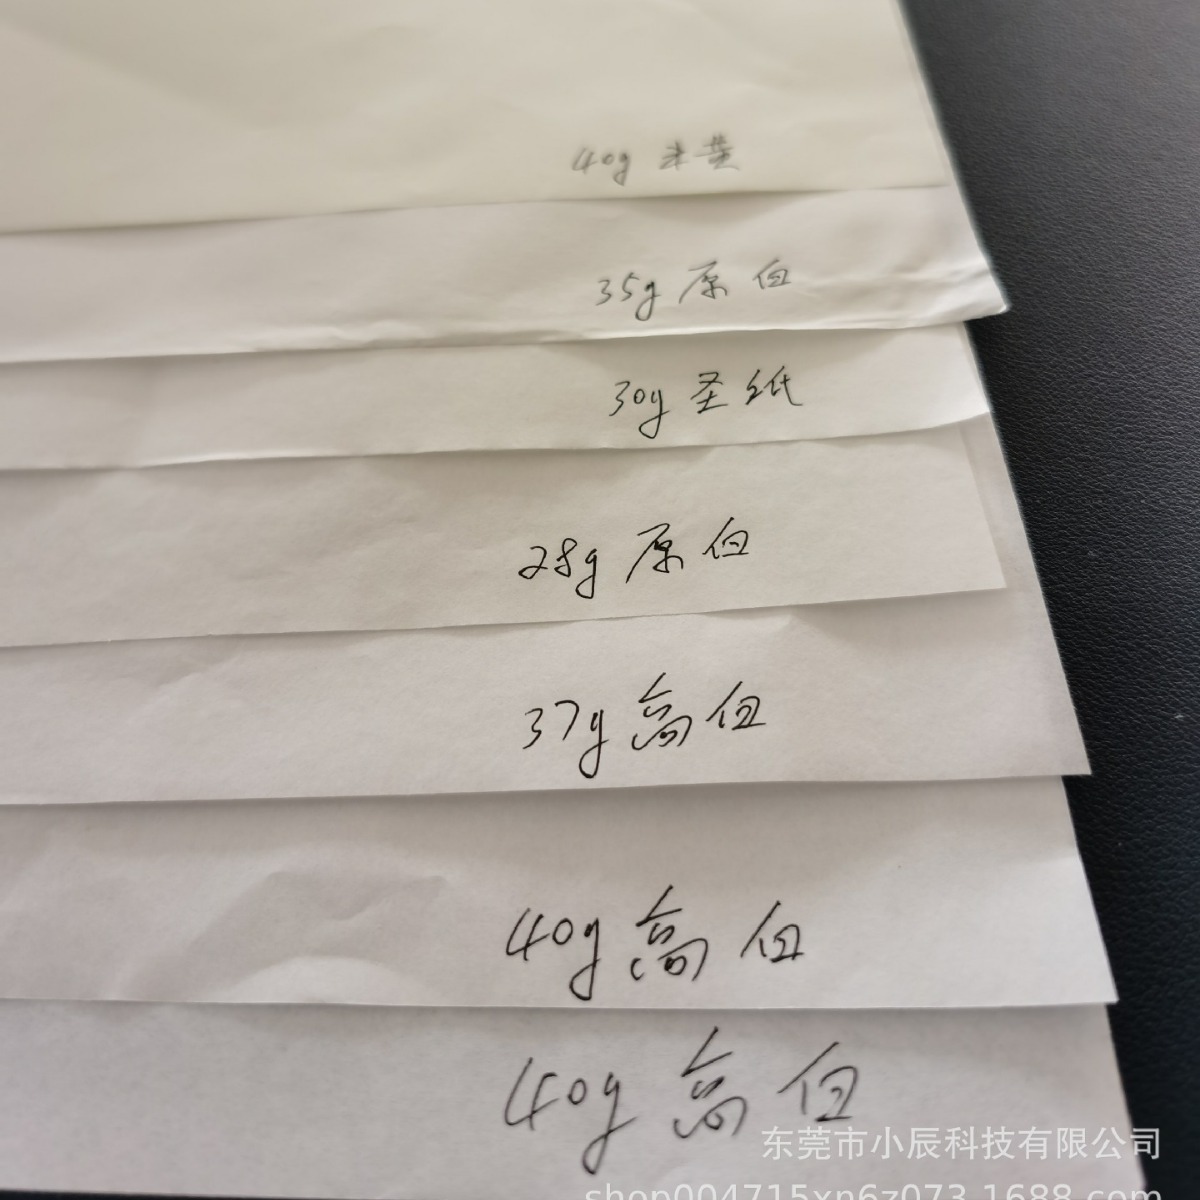 40g 米黄
35g 原白
30g 圣纸
28g 原白
37g 高白
40g 高白
40g 高白
东莞市小辰科技有限公司
shop004715xn6z073.1688.com